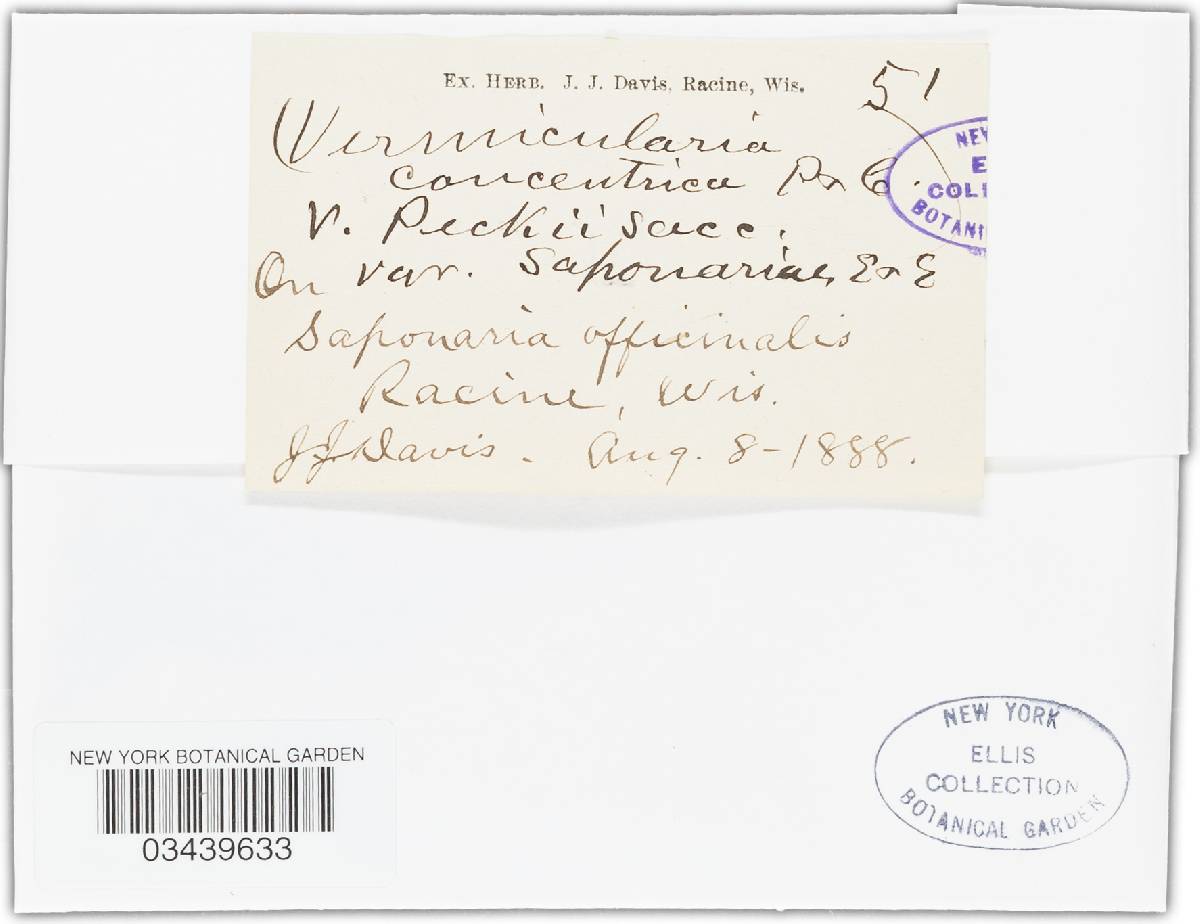 Ex. Herb. J. J. Davis, Racine, Wis.
51
Vermicularia
concentrica P & C.
V. Peckii Sacc.
On var. Saponariae, E & E
Saponaria officinalis
Racine, Wis.
J J Davis. Aug. 8-1888.
NEW
E
COLL
BOTANI
NEW YORK BOTANICAL GARDEN
03439633
NEW YORK
ELLIS
COLLECTION
BOTANICAL GARDEN